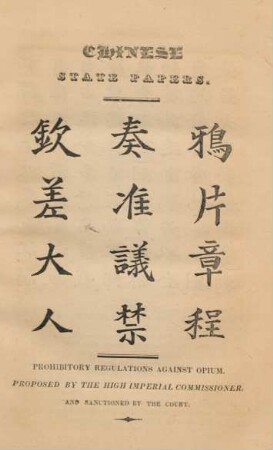 CHINESE
STATE PAPERS.
欽差大人
奏准議禁
鴉片章程
PROHIBITORY REGULATIONS AGAINST OPIUM.
PROPOSED BY THE HIGH IMPERIAL COMMISSIONER.
AND SANCTIONED BY THE COURT.